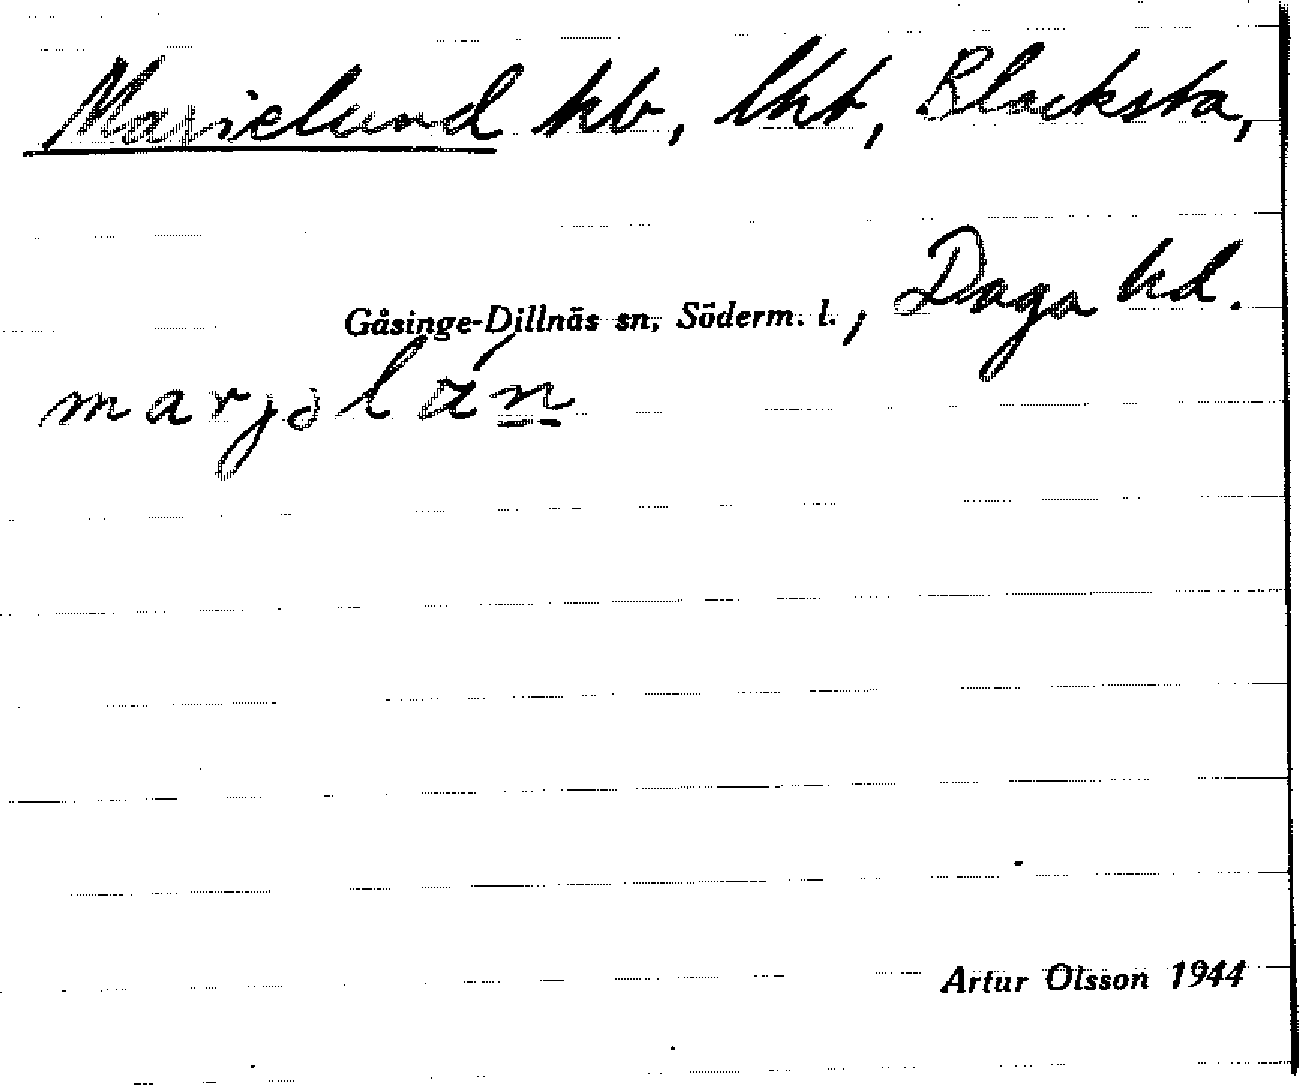 Marielund hb, lht, Blacksta,
Gåsinge-Dillnäs sn, Söderm. l., Daga hd.
Artur Olsson 1944